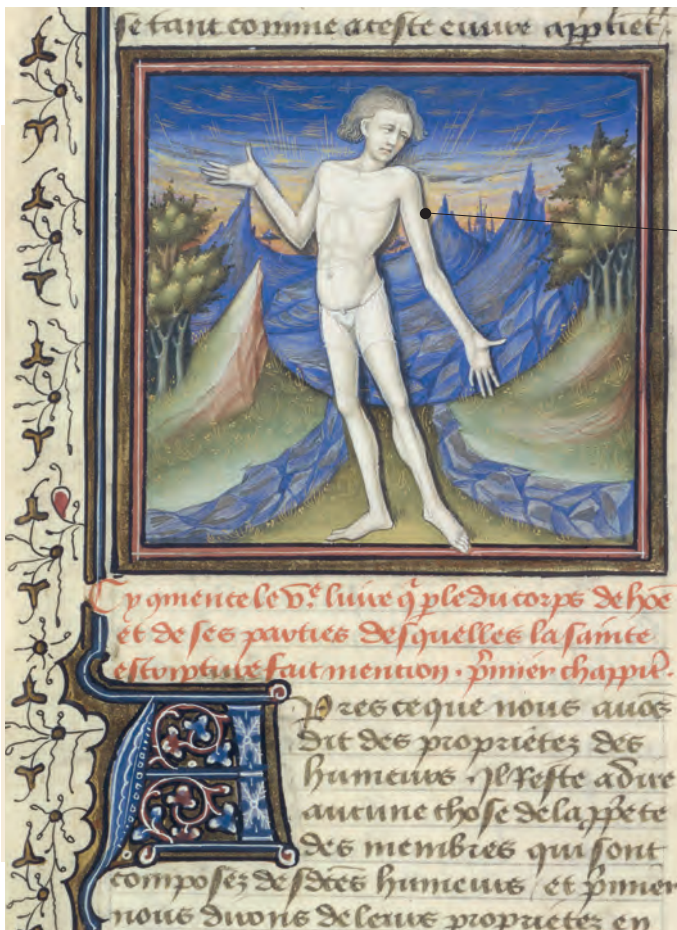 se tant comme a ceste euure appartiet.
Cy gmence le v.e liure q̄ ple du corps de hōe
et de ses parties desquelles la sainte
escripture fait mention. p̄mier chappit̄.
Apres ce que nous auōs
dit des proprietez des
humeurs. Il reste a dire
aucune chose de la pp̄ete
des membres qui sont
composez desdc̄es humeurs / et p̄mier
nous dirons de leurs proprietez en